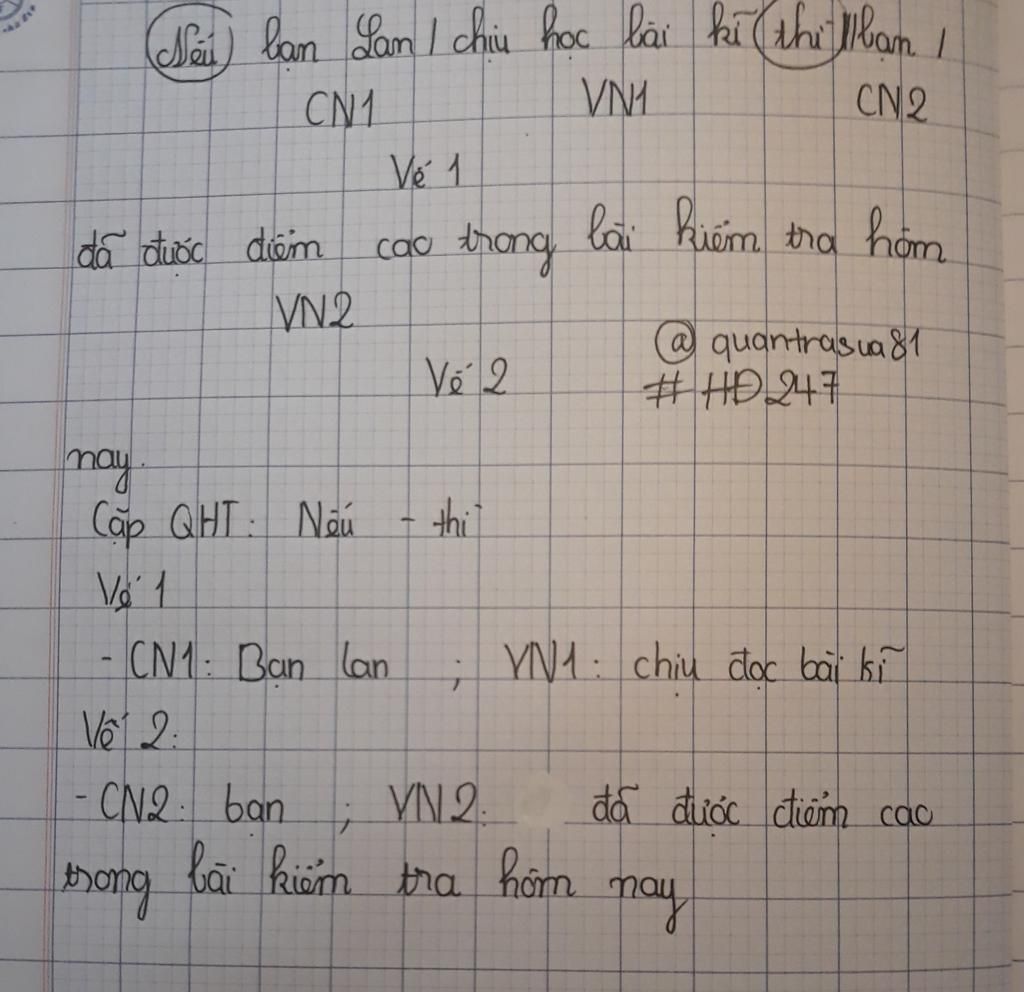 Nếu bạn Lan / chịu học bài kĩ thì // bạn /
CN1 VN1 CN2
Vế 1
đã được điểm cao trong bài kiểm tra hôm
VN2
@ quantrasua81
Vế 2 # HĐ247
nay.
Cặp QHT: Nếu - thì
Vế 1
- CN1: Bạn lan ; VN1: chịu đọc bài kĩ
Vế 2:
- CN2: bạn ; VN2: đã được điểm cao
trong bài kiểm tra hôm nay